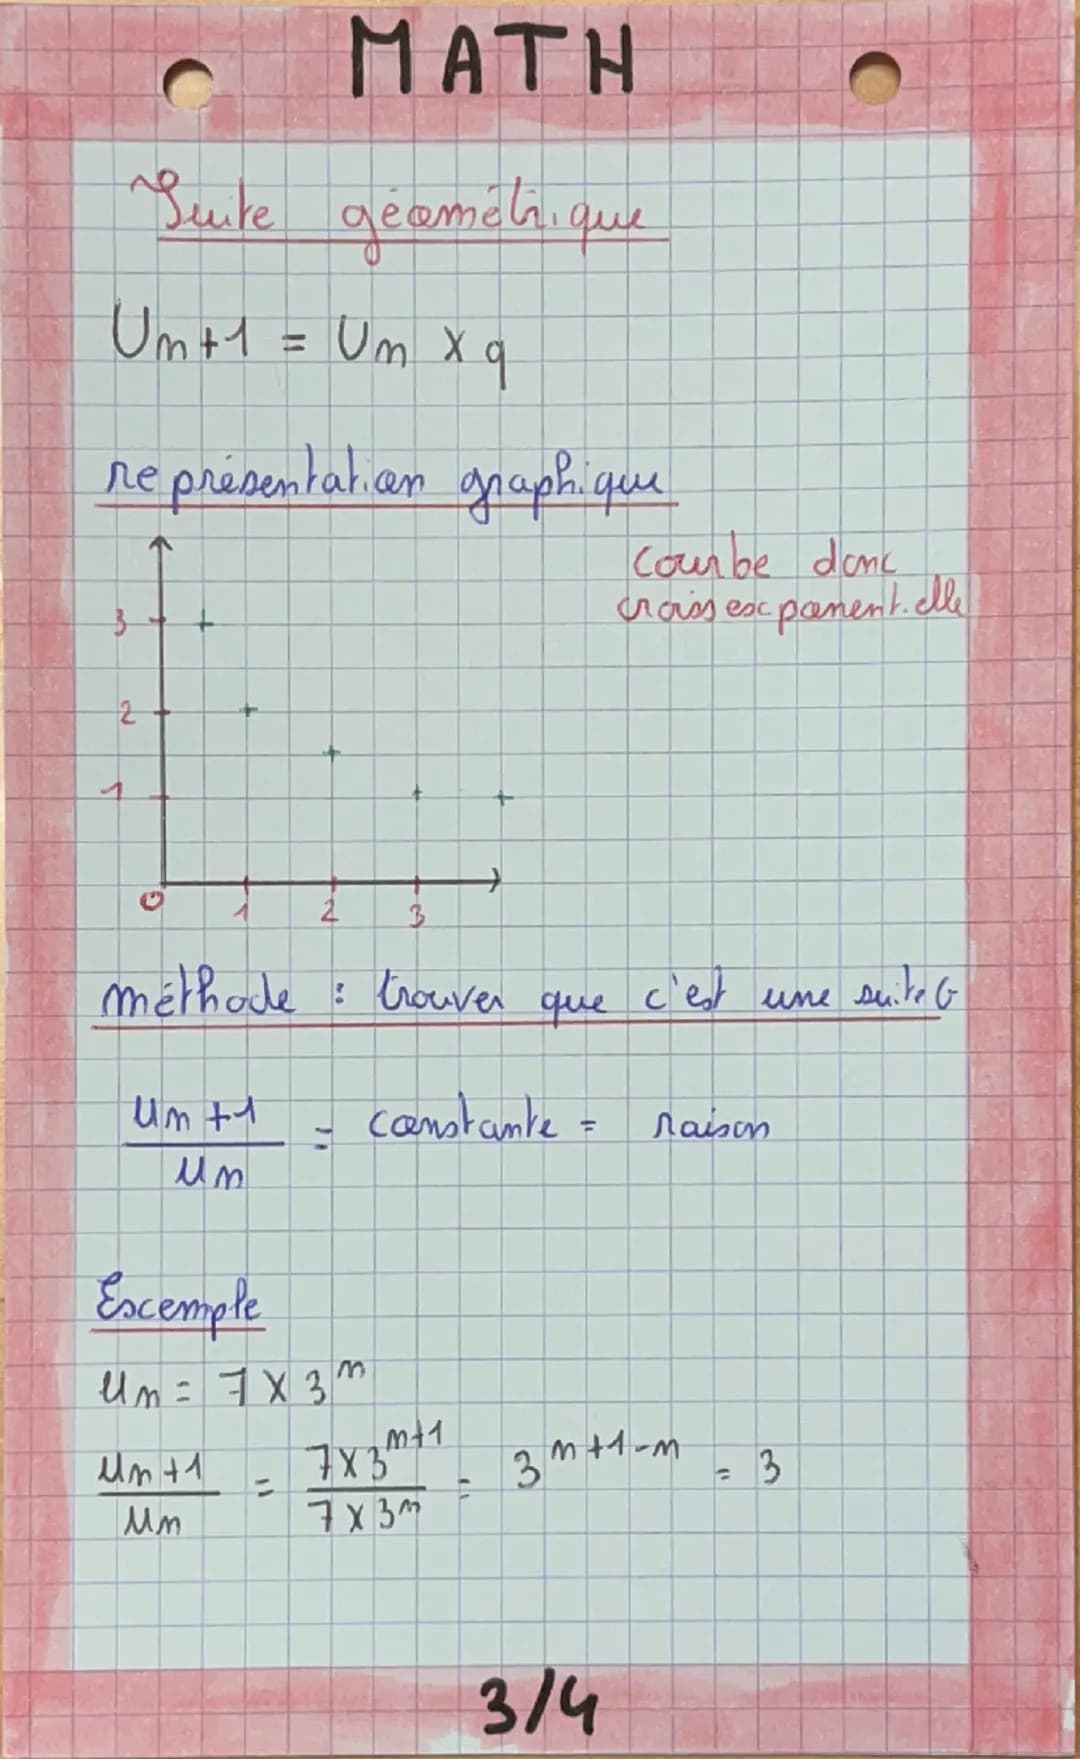 MATH
Suite géométrique
Un+1 = Un x q
représentation graphique
courbe donc
croiss exponentielle
3
2
1
0
1
2
3
méthode : trouver que c'est une suite G
un+1
= constante = raison
un
Exemple
un = 7 x 3^n
un+1 / un = 7x3^n+1 / 7x3^n = 3^n+1-n = 3
3/4